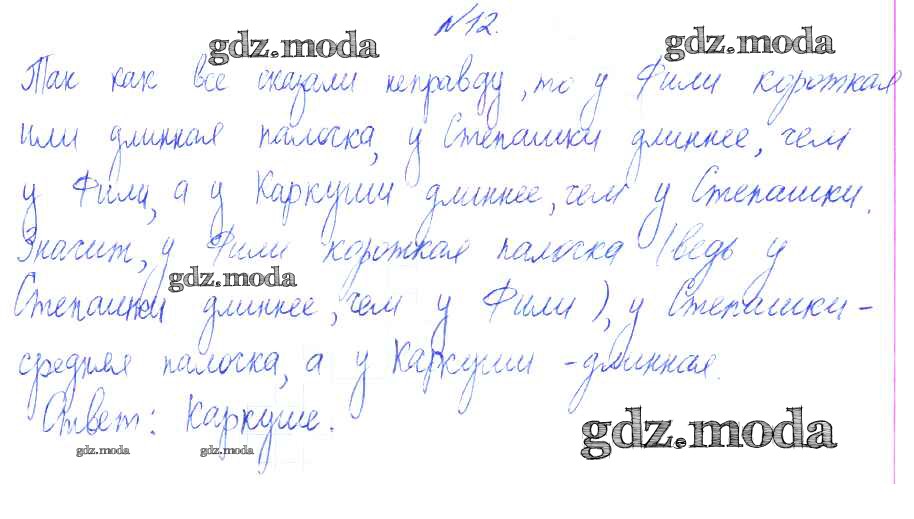 №12.
gdz.moda gdz.moda
Так как все сказали неправду, то у Фили короткая
или длинная палочка, у Степашки длиннее, чем
у Фили, а у Каркуши длиннее, чем у Степашки.
Значит, у Фили короткая палочка (ведь у
gdz.moda
Степашки длиннее, чем у Фили), у Степашки -
средняя палочка, а у Каркуши - длинная.
Ответ: Каркуше.
gdz.moda
gdz.moda gdz.moda